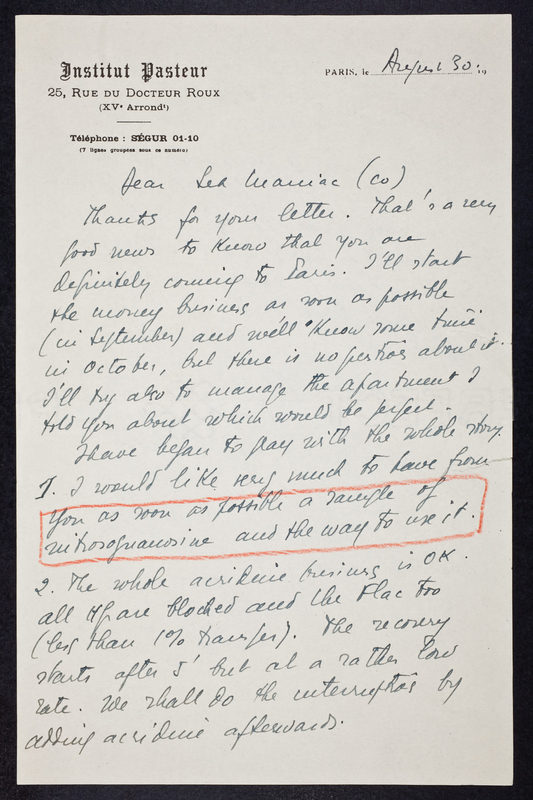 Institut Pasteur
25, RUE DU DOCTEUR ROUX
(XVe Arrondt)
Téléphone : SÉGUR 01-10
(7 lignes groupées sous ce numéro)
PARIS, le August 30. 19
Dear Sea Maniac (co)
Thanks for your letter. That's a very
good news to know that you are
definitely coming to Paris. I'll start
the money business as soon as possible
(in September) and we'll know some time
in October, but there is no question about it.
I'll try also to manage the apartment I
told you about which would be perfect.
I have began to play with the whole story.
1. I would like very much to have from
you as soon as possible a sample of
nitrosoguanosine and the way to use it.
2. The whole acridine business is OK.
all Hfr are blocked and the Flac too
(less than 1% transfer). The recovery
starts after 5' but at a rather low
rate. We shall do the interruption by
adding acridine afterwards.